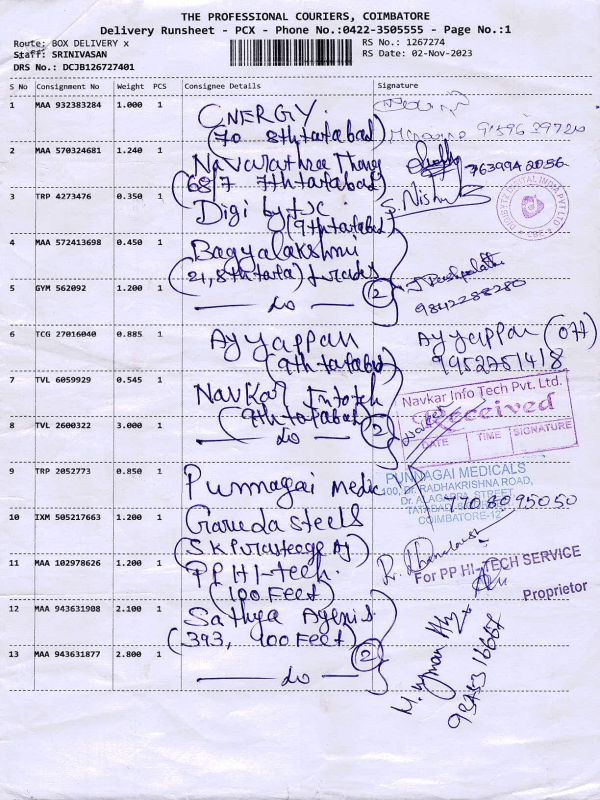 THE PROFESSIONAL COURIERS, COIMBATORE
Delivery Runsheet - PCX - Phone No.:0422-3505555 - Page No.:1
Route: BOX DELIVERY x
RS No.: 1267274
Staff: SRINIVASAN
RS Date: 02-Nov-2023
DRS No.: DCJB126727401
S No Consignment No Weight PCS Consignee Details Signature
1 MAA 932383284 1.000 1 CNERGY.
(70 8th tatabad)
2 MAA 570324681 1.240 1 Navarathna Thanga 7639942056
(68/7 7th tatabad)
3 TRP 4273476 0.350 1 Digi bytsc S. Nishu
(9th tatabad)
4 MAA 572413698 0.450 1 Bagyalakshmi
(21, 8th tata) trades
5 GYM 562092 1.200 1 do (2) 9842288280
6 TCG 27016040 0.885 1 Ayyappan Ayyappan (O77)
(9th tatabad) 9952751418
7 TVL 6059929 0.545 1 Navkar Infotech
(9th tatabad)
Navkar Info Tech Pvt. Ltd.
Received
DATE TIME SIGNATURE
8 TVL 2600322 3.000 1 do (2)
9 TRP 2052773 0.850 1 Punnagai Medic
PUNNAGAI MEDICALS
100, Dr. RADHAKRISHNA ROAD,
Dr. ALAGAPPA STREET,
TATABAD,
COIMBATORE-12
7708095050
10 IXM 505217663 1.200 1 Garuda steels
11 MAA 102978626 1.200 1 PP HI-tech.
(100 Feet)
For PP HI-TECH SERVICE
Proprietor
12 MAA 943631908 2.100 1 Sathya Agenis
(393, 100 Feet)
13 MAA 943631877 2.800 1 do (2)